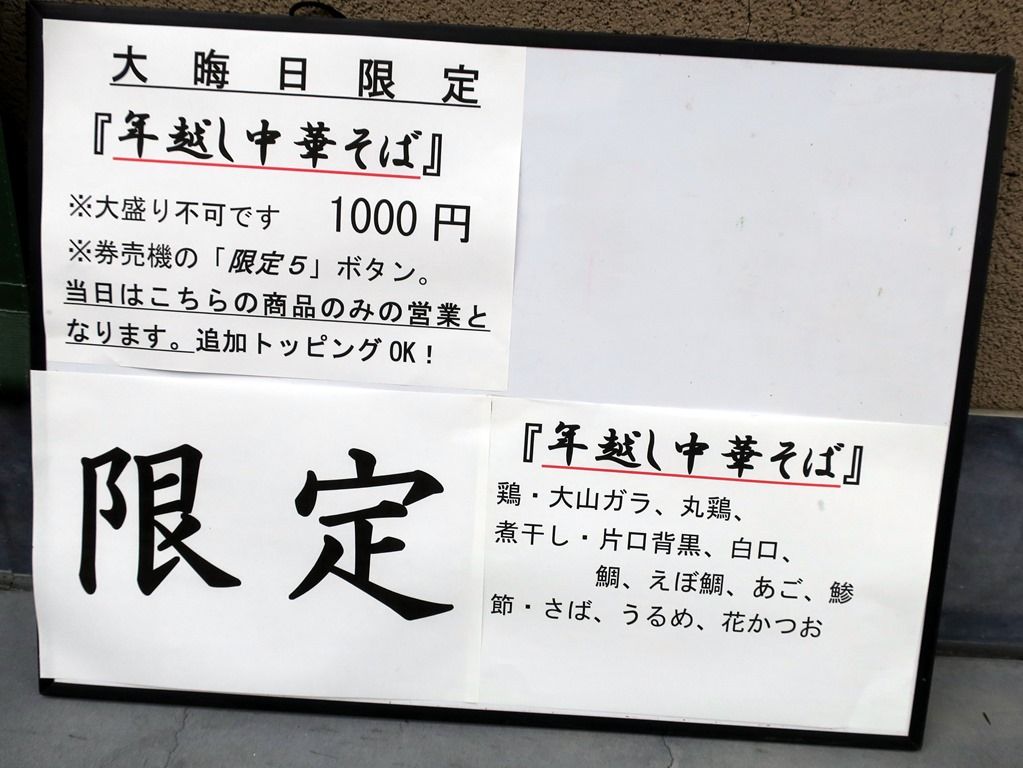 大晦日限定
『年越し中華そば』
※大盛り不可です 1000円
※券売機の「限定５」ボタン。
当日はこちらの商品のみの営業と
なります。追加トッピングOK！
限定
『年越し中華そば』
鶏・大山ガラ、丸鶏、
煮干し・片口背黒、白口、
鯛、えぼ鯛、あご、鯵
節・さば、うるめ、花かつお